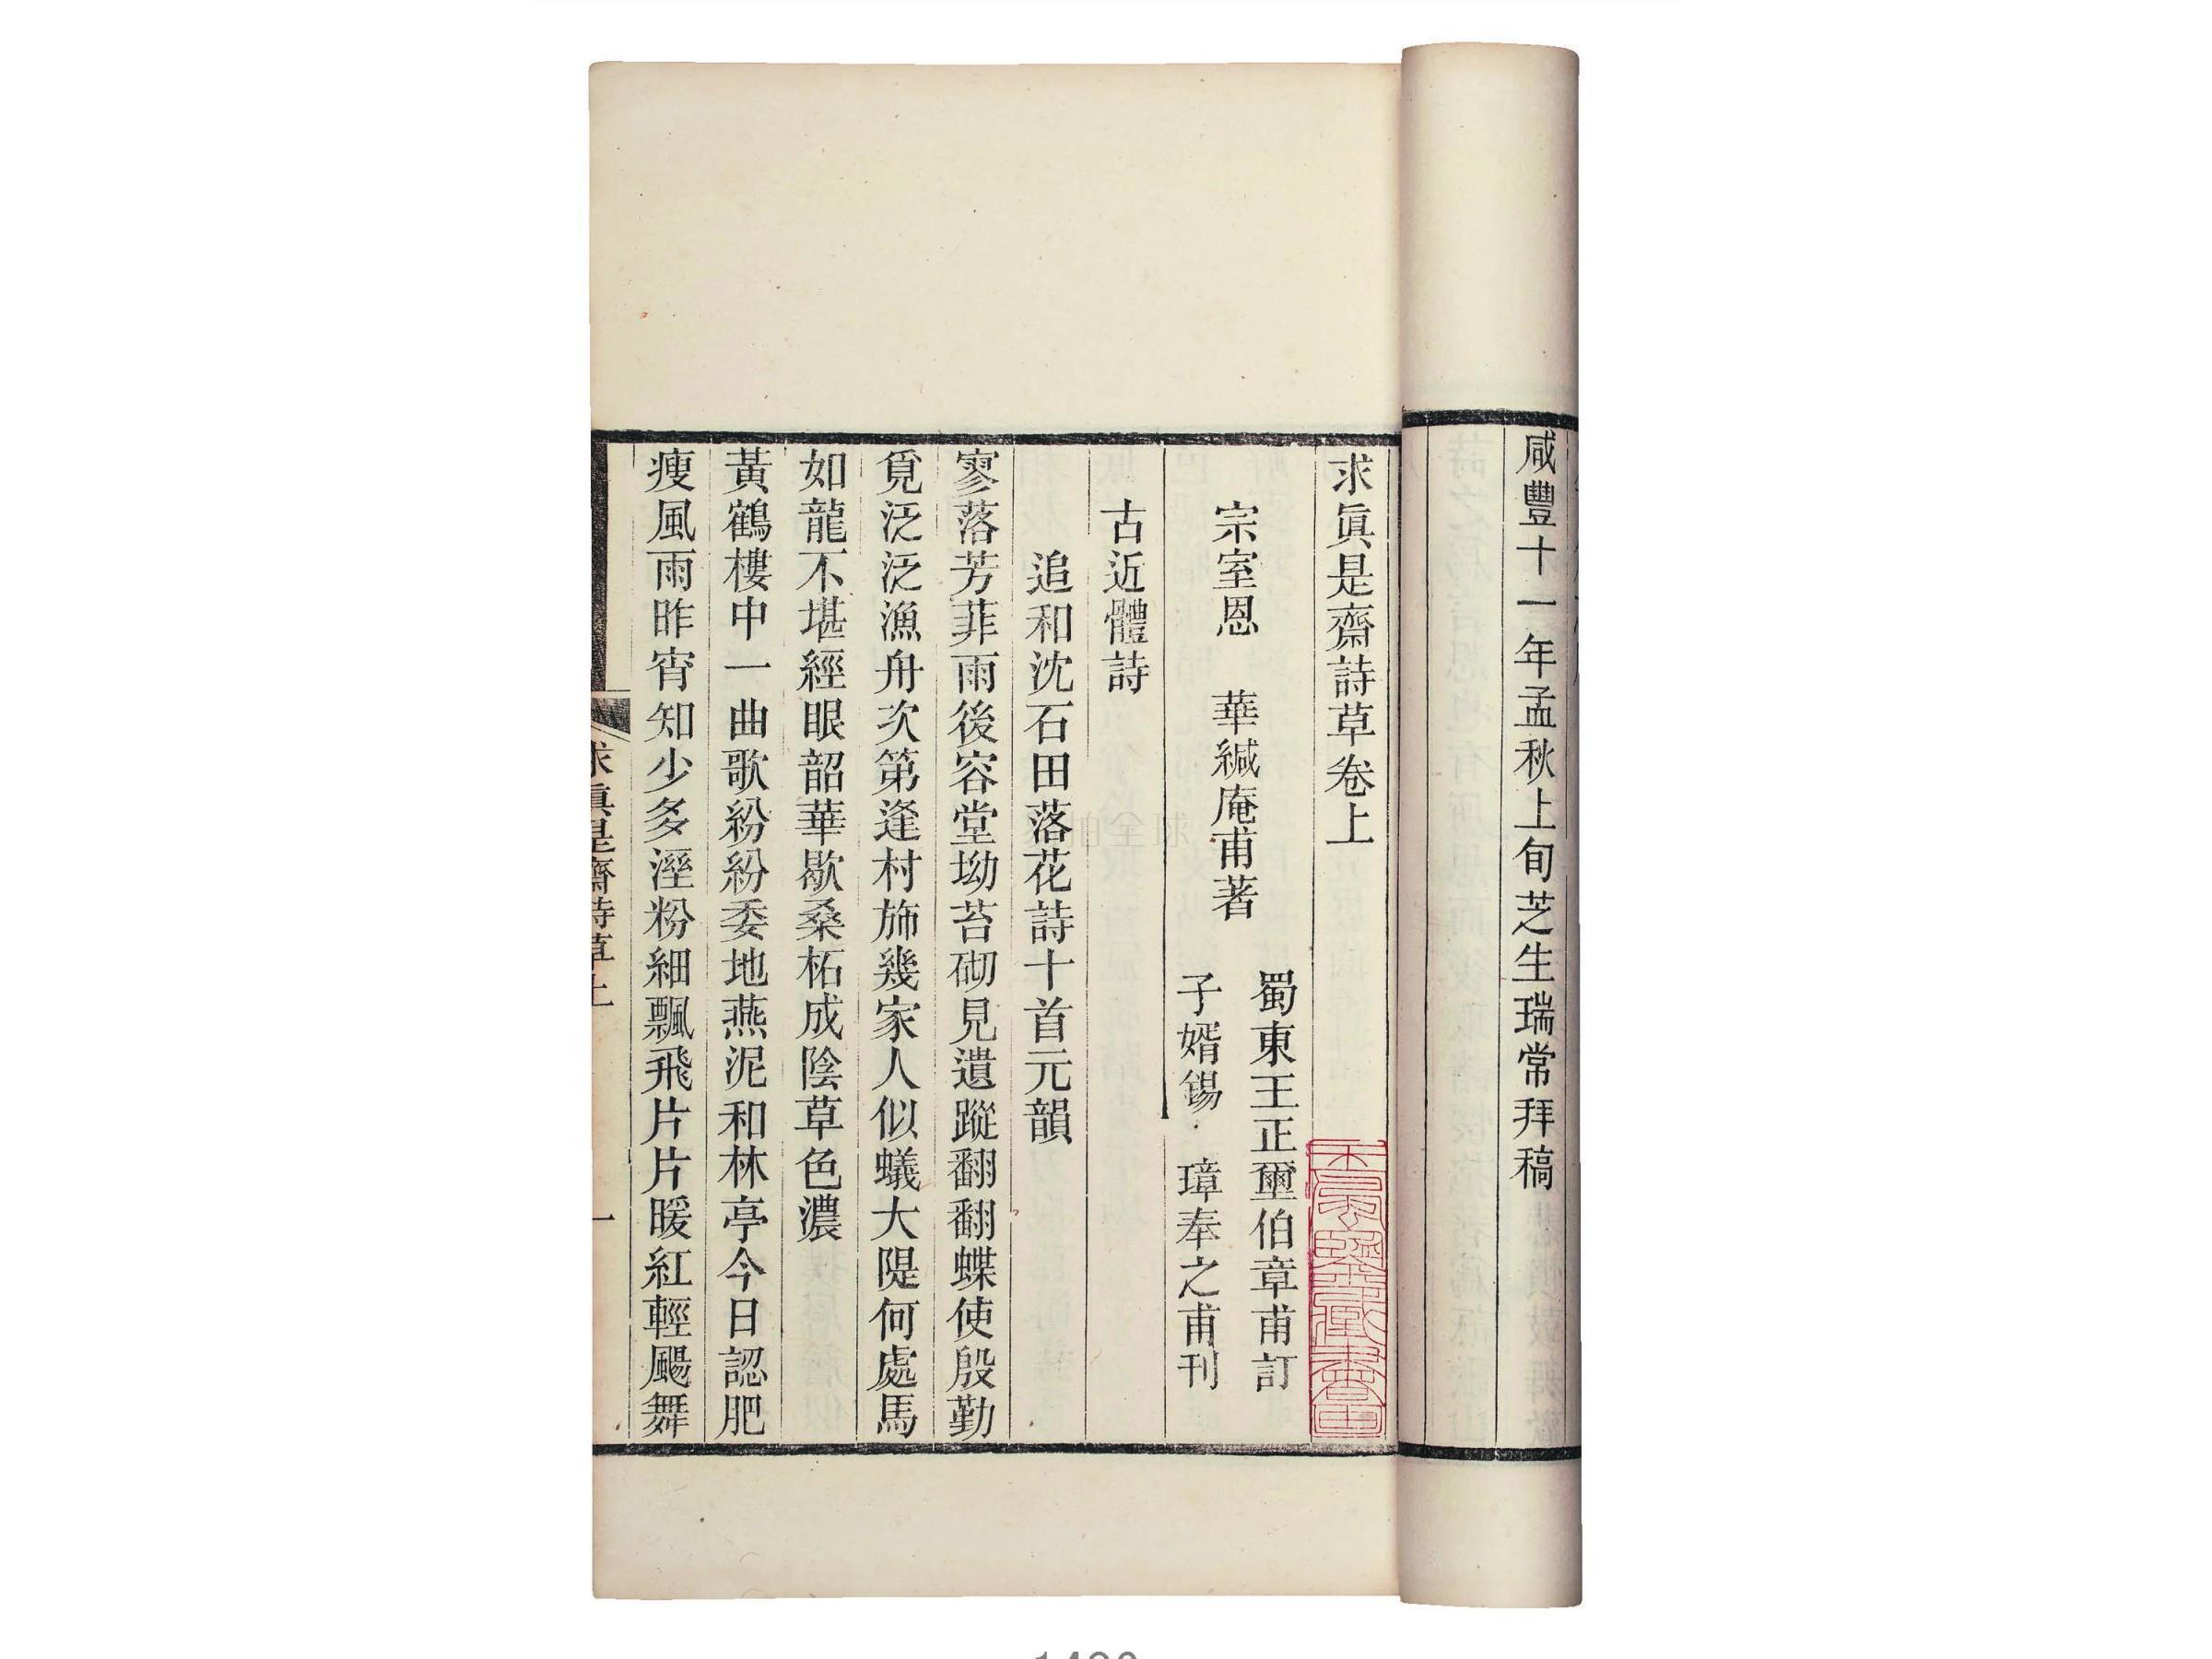 咸豐十一年孟秋上旬芝生瑞常拜稿
求眞是齋詩草卷上
蜀東王正璽伯章甫訂
宗室恩　華緘庵甫著
子婿錫　璋奉之甫刊
古近體詩
追和沈石田落花詩十首元韻
寥落芳菲雨後容堂坳苔砌見遺蹤翻翻蝶使殷勤
覓泛泛漁舟次第逢村斾幾家人似蟻大隄何處馬
如龍不堪經眼韶華歇桑柘成陰草色濃
黃鶴樓中一曲歌紛紛委地燕泥和林亭今日認肥
瘦風雨昨宵知少多溼粉細飄飛片片暖紅輕颺舞
求眞是齋詩草上
一
拍全球